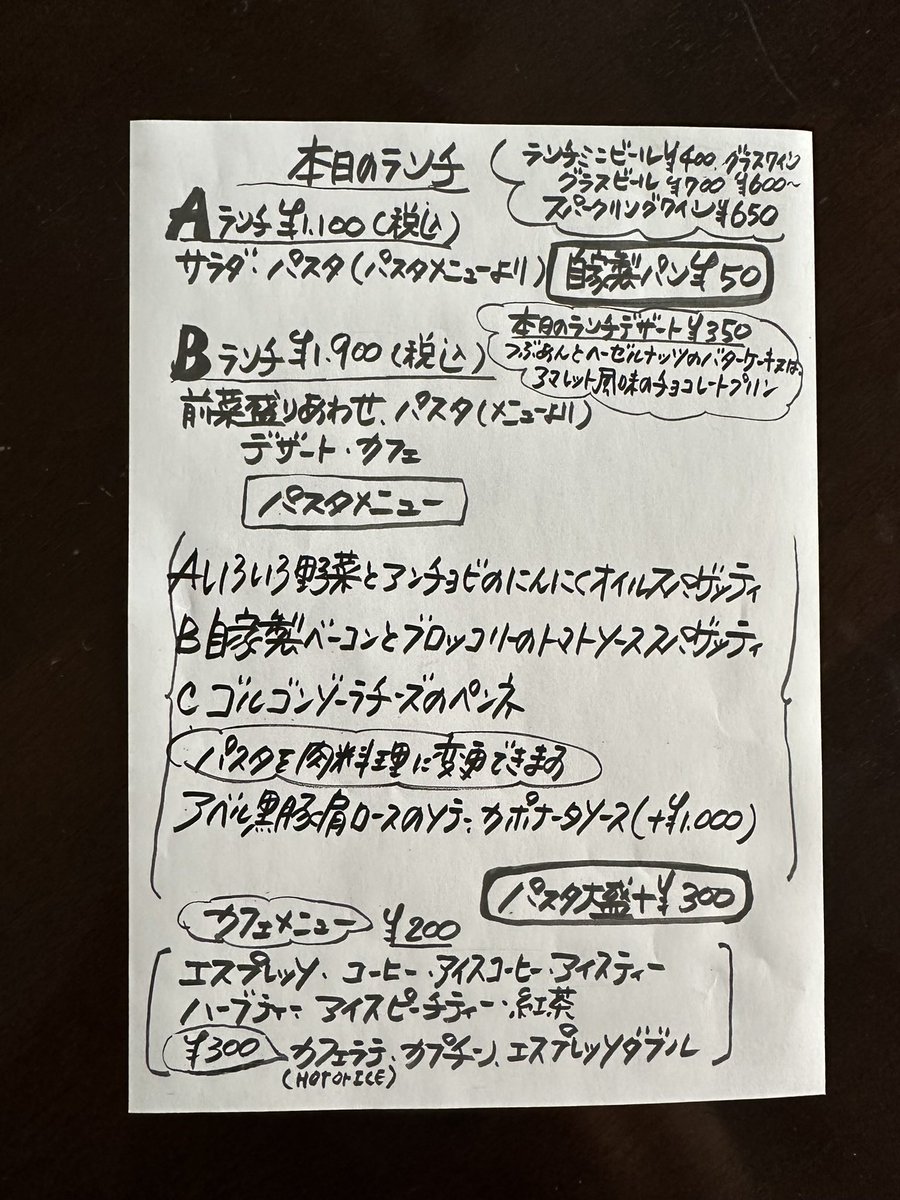 本日のランチ
ランチミニビール¥400、グラスワイン
グラスビール ¥700 ¥600~
スパークリングワイン¥650
Aランチ¥1,100(税込)
サラダ・パスタ(パスタメニューより)
自家製パン¥50
本日のランチデザート¥350
つぶあんとヘーゼルナッツのバターケーキ又は、
アマレット風味のチョコレートプリン
Bランチ¥1,900(税込)
前菜盛りあわせ、パスタ(メニューより)
デザート・カフェ
パスタメニュー
Aいろいろ野菜とアンチョビのにんにくオイルスパゲッティ
B自家製ベーコンとブロッコリーのトマトソーススパゲッティ
Cゴルゴンゾーラチーズのペンネ
パスタを肉料理に変更できます
アベル黒豚肩ロースのソテー、カポナータソース(+¥1,000)
パスタ大盛+¥300
カフェメニュー ¥200
エスプレッソ・コーヒー・アイスコーヒー・アイスティー
ハーブティー・アイスピーチティー・紅茶
¥300 カフェラテ、カプチーノ、エスプレッソダブル
(HOT or ICE)